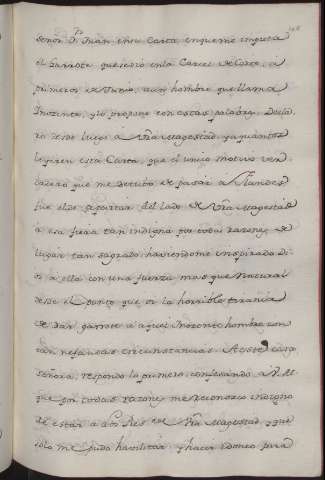 señor D. Juan en su Carta en que me imputa
el Garrote que se dio en la Carcel de Corte, a
primeros de Junio, a un hombre que llama
Inozente, y lo propone con estas palabras. Decla
ro desde luego a Vra Magestad, y a quantos
leyeren esta Carta, que el unico motivo ver
dadero que me detubo de pasar a Flandes
fue el de apartar del lado de Vra Magestad
a esa fiera tan indigna por todas razones de
lugar tan sagrado, haviendome inspirado Di
os a ello con una fuerza mas que natural
desde el punto que oi la horrible tirania
de dar garrote a aquel Inozente hombre con
tan nefandas circunstancias. A este caso
señora, respondo lo primero, confesando a V. M.
que por todas razones me reconozco indigno
de estar a los Pies de Vra Magestad, y que
solo me pudo havilitar, y hacer idoneo para